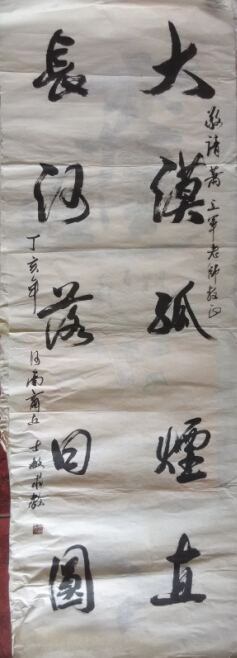 敬請萬立軍老師教正
大漠孤煙直
長河落日圓
丁亥年 河南商丘 士敏求教